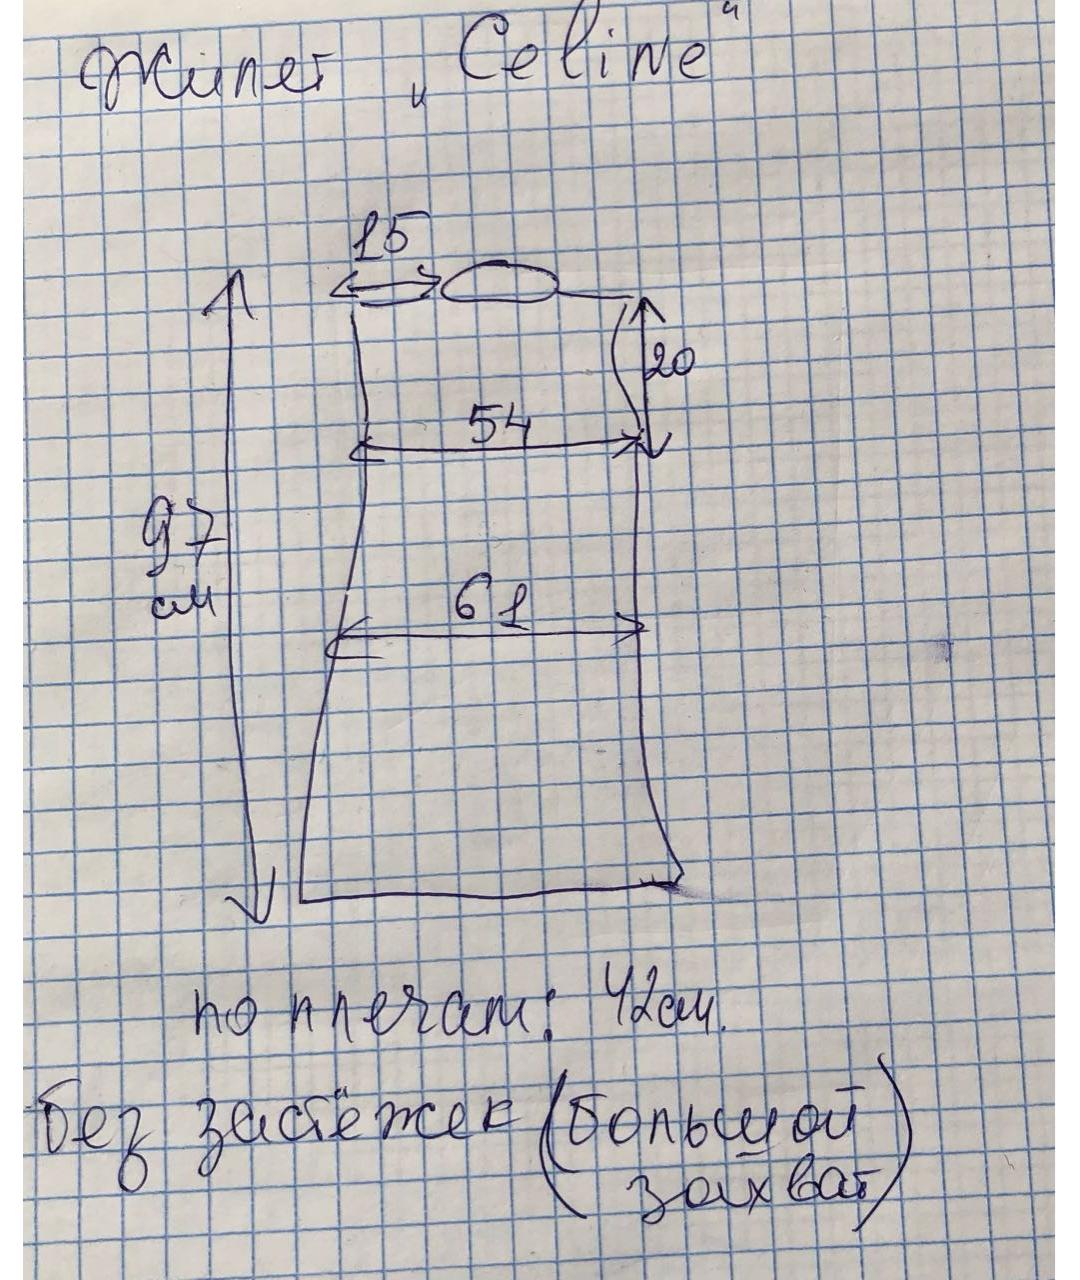 Жилет "Celine"
15
20
54
97
см
61
по плечам: 42см.
без застёжек (большой
захват)